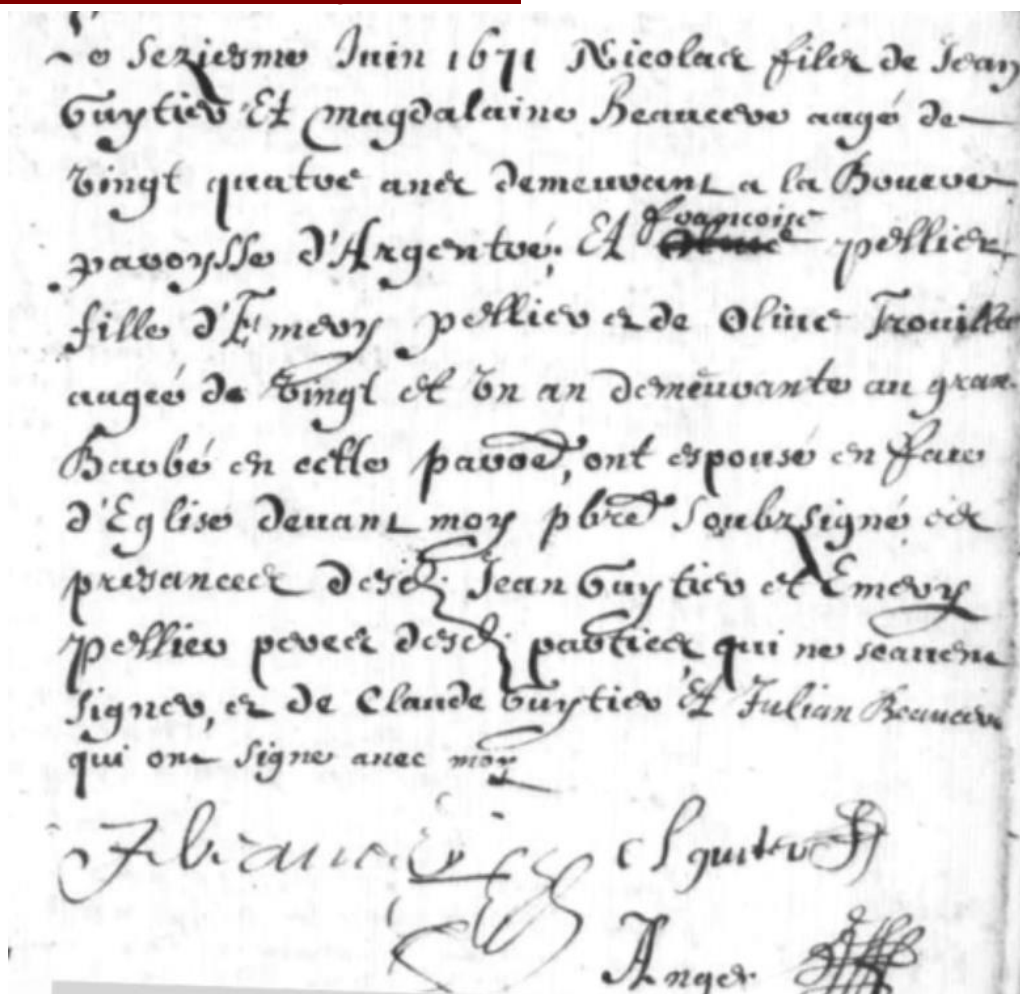 Le seziesme Juin 1671 Nicolas fils de Jean
Guytier Et Magdalaine Beaucere aagé de
vingt quatre ans demeurant a la Bouere
paroysse d'Argentré, Et françoise pellier
fille d'Emery pellier et de Oliue Trouillet
aagée de vingt et vn an demeurante au gran
Barbé en cette paroe, ont espousé en face
d'Eglise deuant moy pbre soubzsigné es
presances desd. Jean Guytier et Emery
pellier peres desd. parties qui ne scauent
signer, et de Claude Guytier Et Julian Beaucere
qui ont signe auec moy
C guiter
J Anger